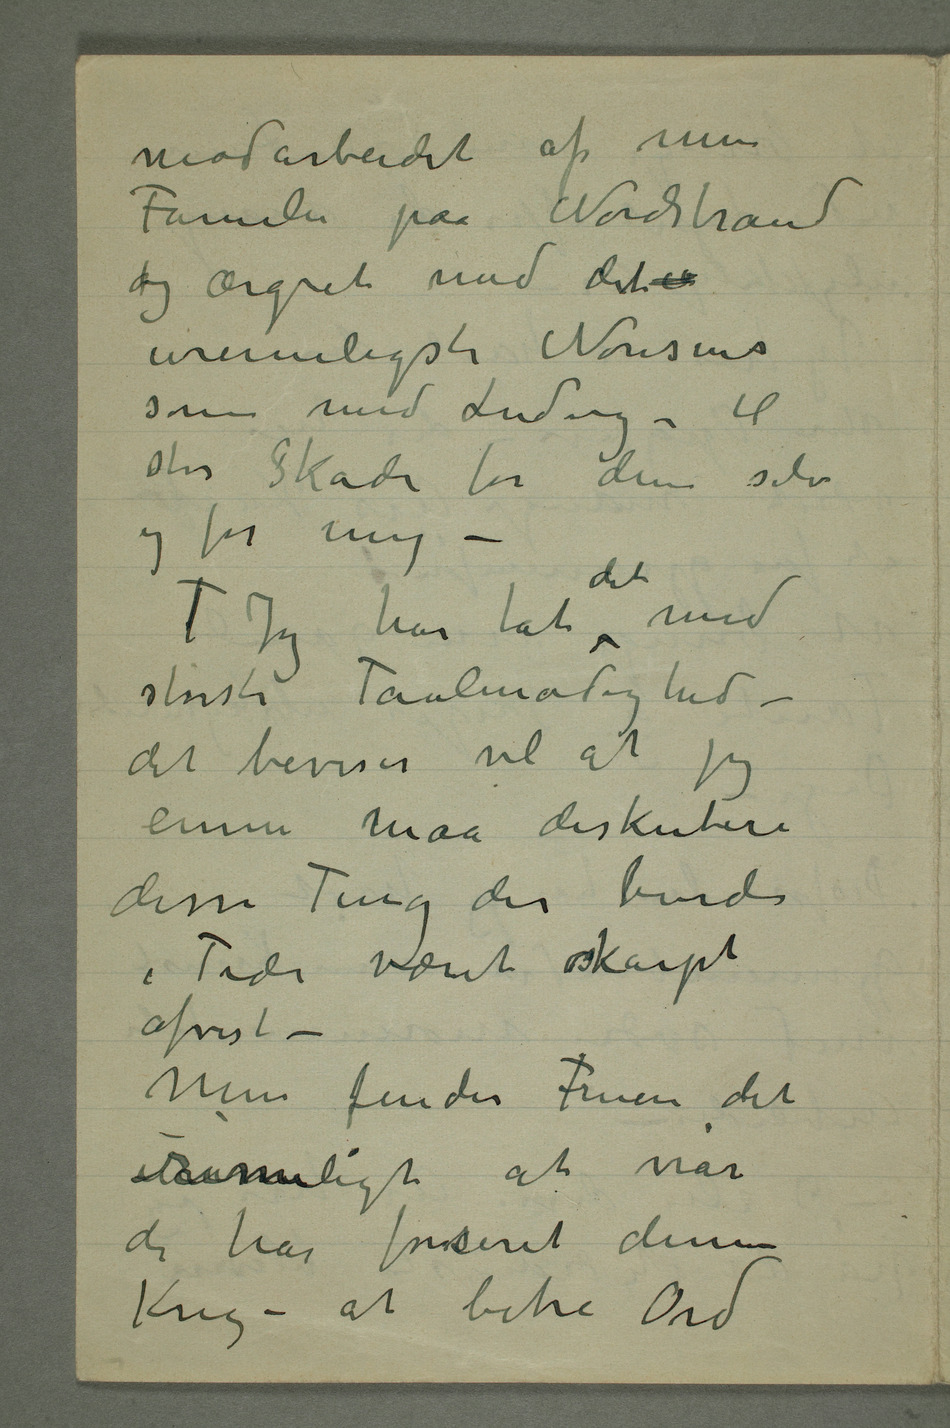 modarbeidet af min
Familie paa Nordstrand
og ærgret med det
urimeligste Nonsens
som med Ludvig – til
stor Skade for dem selv
og for mig –
T Jeg har tat det med
største Taalmodighed –
det beviser vel at jeg
ennu maa diskutere
disse Ting der burde
i Tide været skarpt
afvist –
Men finder Fruen det
urimeligt at når
de har forceret denne
Krig – at bitre Ord